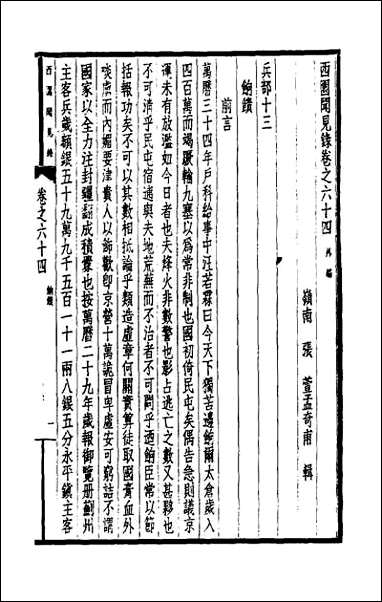 西園聞見錄卷之六十四 外編
嶺南 張 萱孟奇甫 輯
兵部十三
餉饋
前言
萬曆三十四年戶科給事中汪若霖曰今天下獨苦邊餉爾太倉歲入
四百萬而竭蹶輸九塞以爲常非制也國初倚民屯矣偶告急則議京
運未有放濫如今日者也夫烽火非數警也影占逃亡之數又甚夥也
不可清乎民屯宿逋與夫地荒蕪而不治者不可問乎迺餉臣常以節
括報功矣不可以其數相抵論乎類造虛章何關實算徒取國膏血外
啖虜而內媚要津貴人以飾歡卽京營十萬詭冒卑虛安可窮詰不謂
國家以全力注封疆翻成積釁也按萬曆二十九年歲報御覽册薊州
主客兵歲額銀五十九萬九千五百一十一兩八錢五分永平鎮主客
西園聞見錄
卷之六十四
餉饋
一